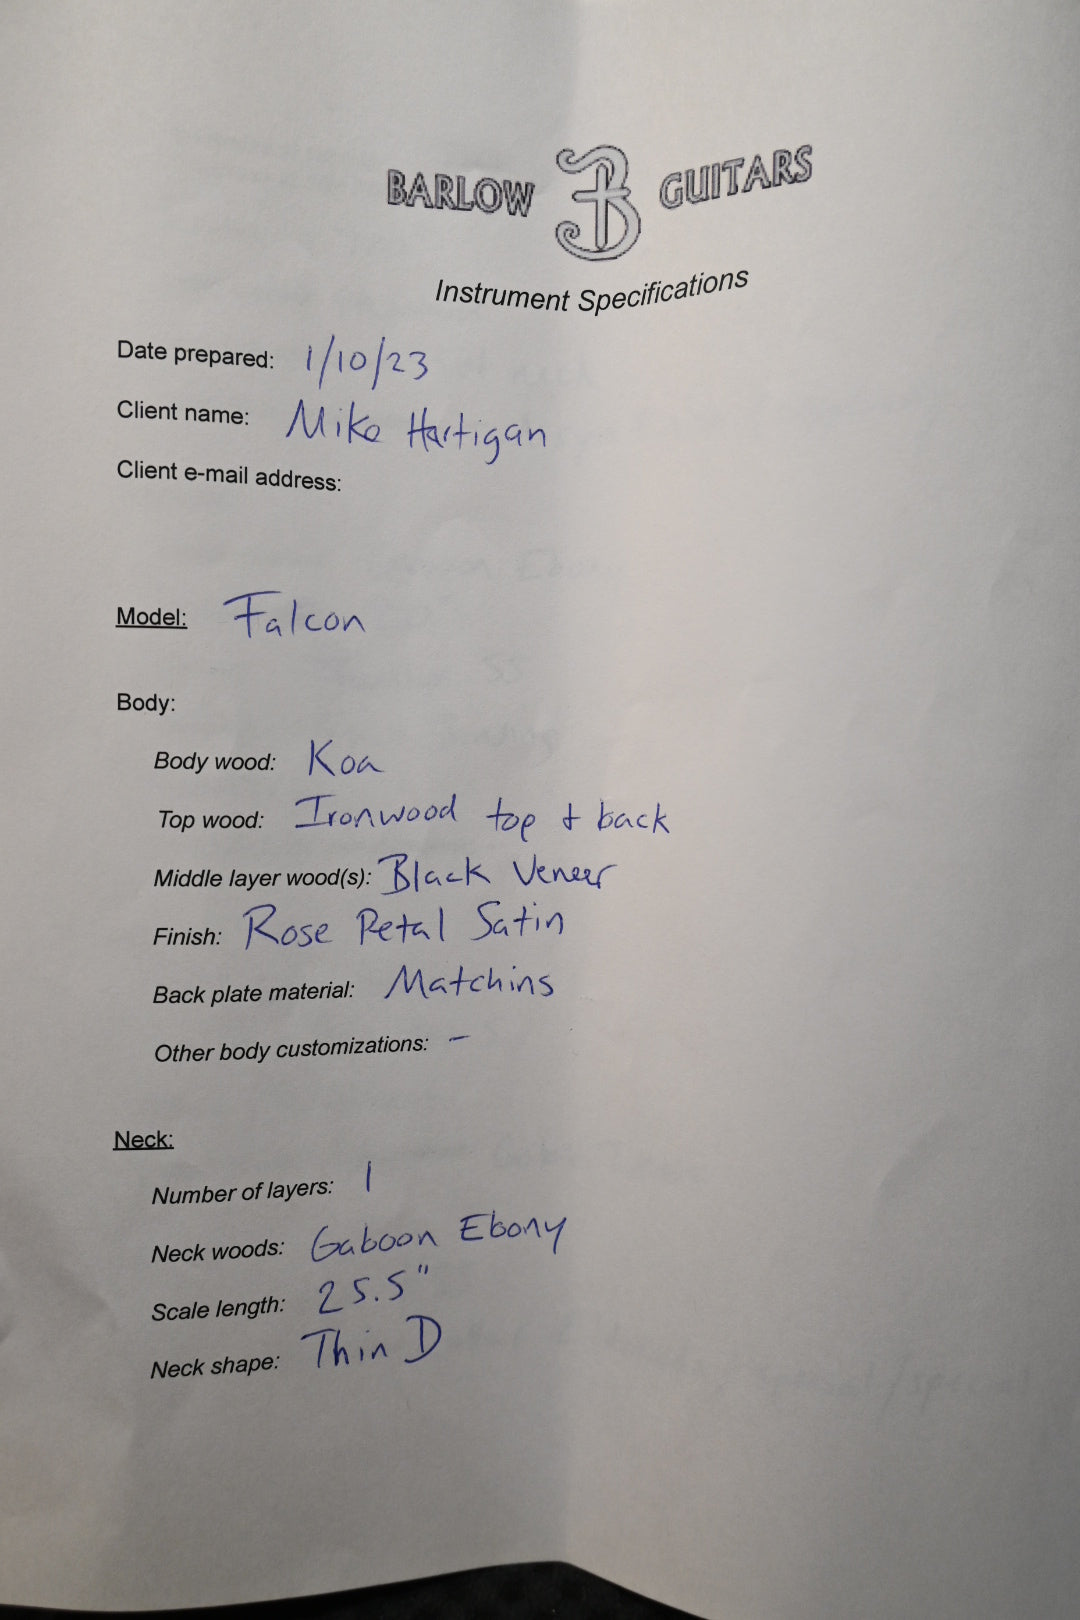 BARLOW B GUITARS
Instrument Specifications
Date prepared: 1/10/23
Client name: Mike Hartigan
Client e-mail address:
Model: Falcon
Body:
Body wood: Koa
Top wood: Ironwood top & back
Middle layer wood(s): Black Veneer
Finish: Rose Petal Satin
Back plate material: Matching
Other body customizations: -
Neck:
Number of layers: 1
Neck woods: Gaboon Ebony
Scale length: 25.5"
Neck shape: Thin D